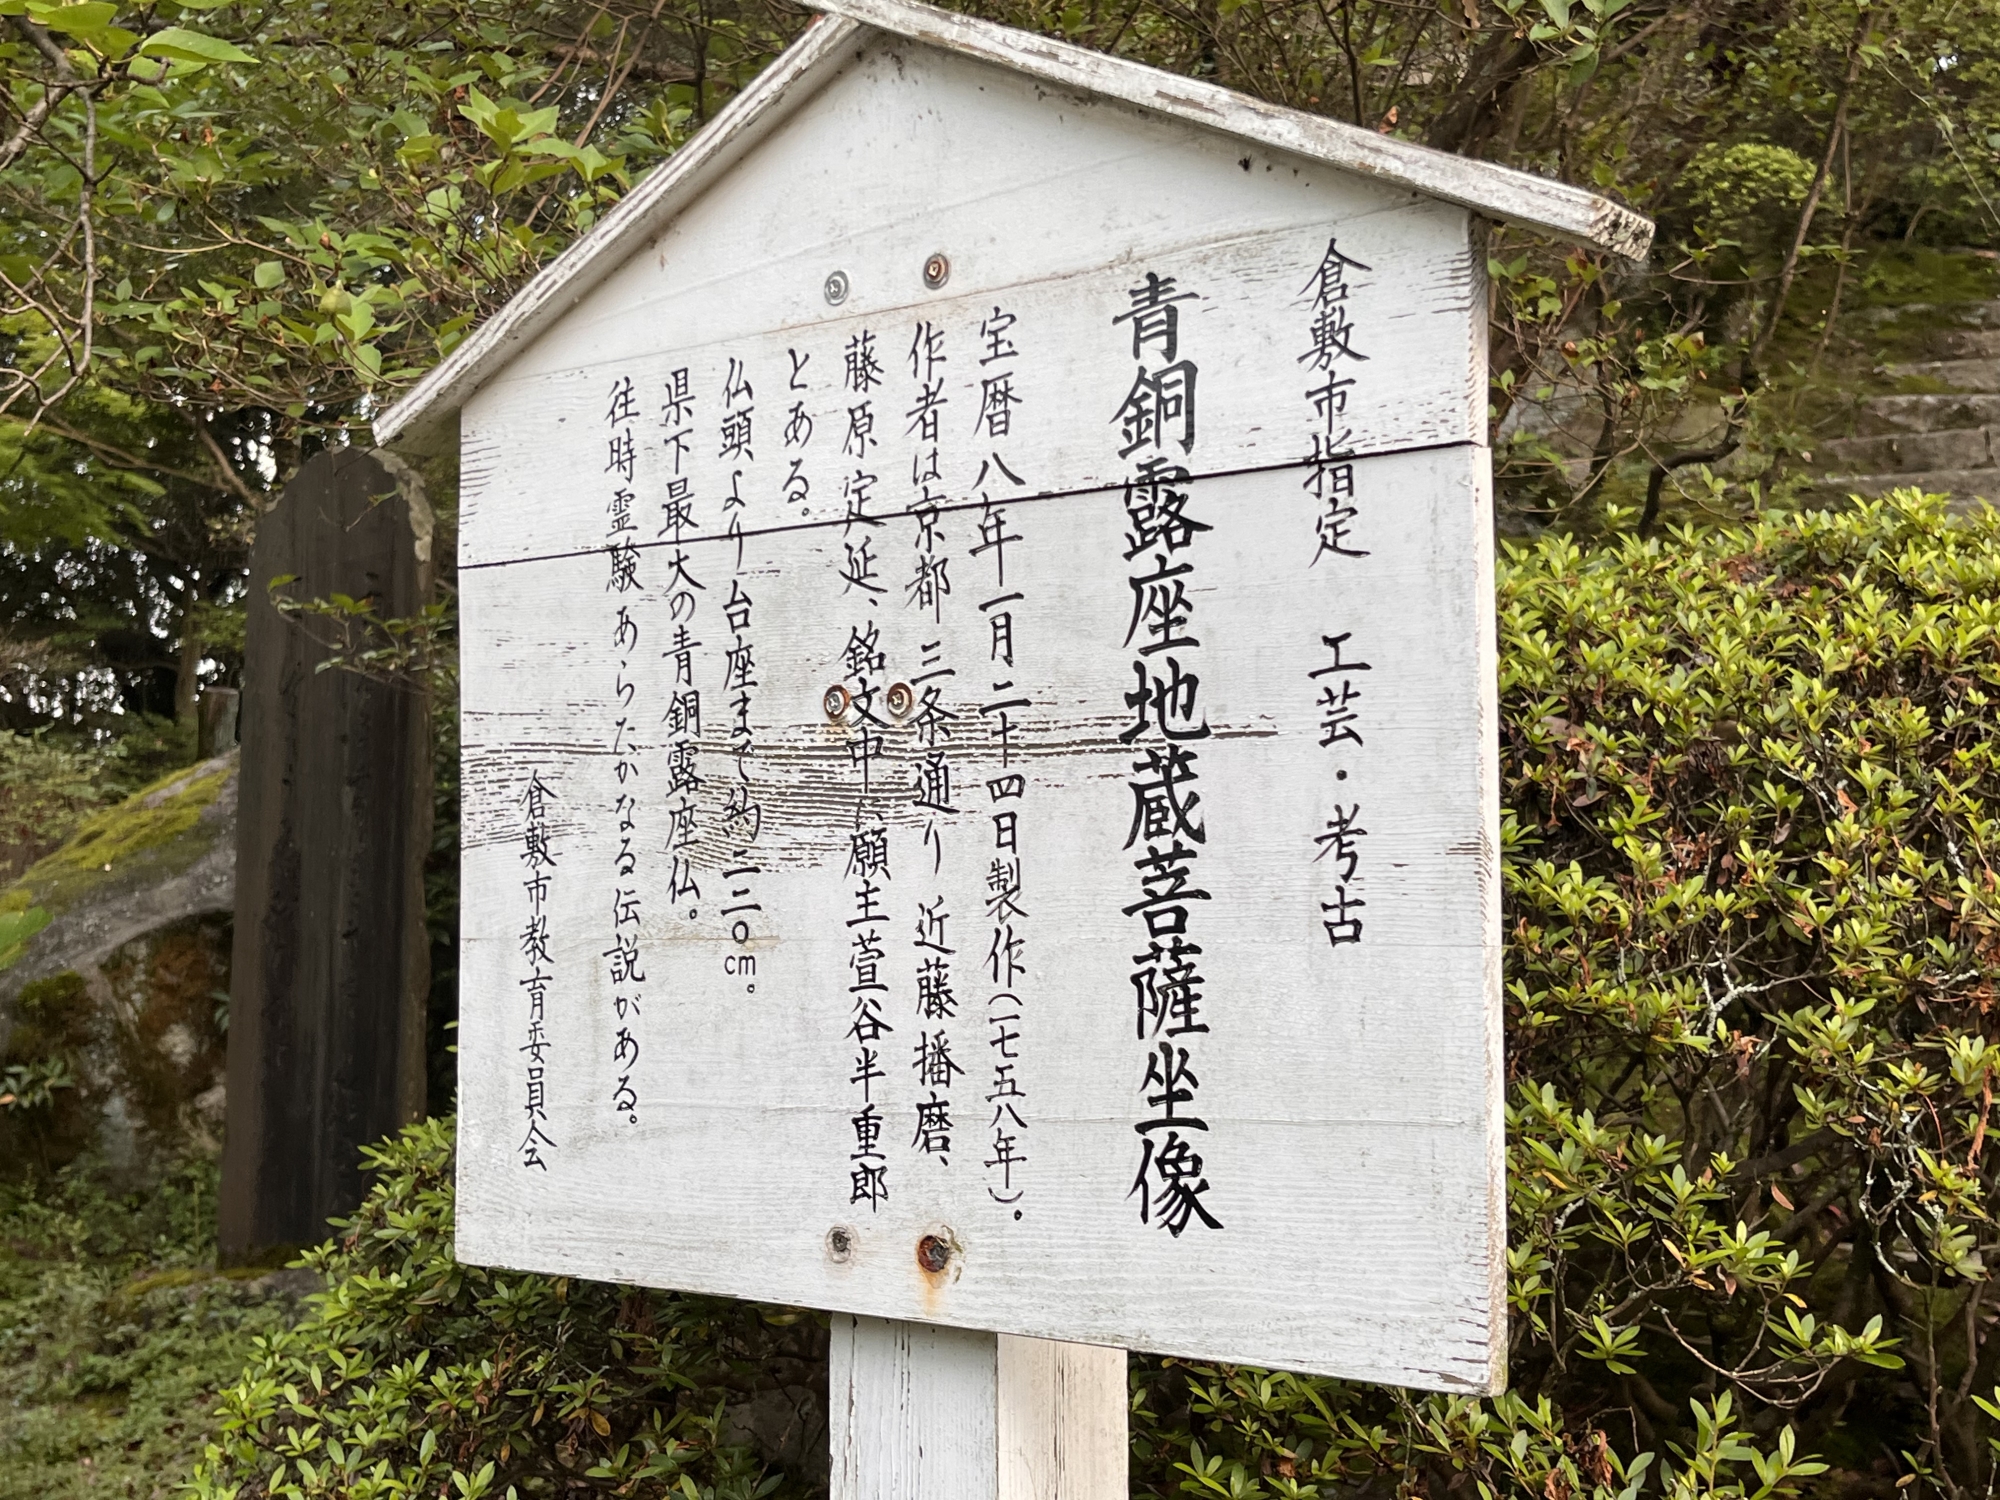 倉敷市指定　工芸・考古
青銅露座地蔵菩薩坐像
宝暦八年一月二十四日製作(一七五八年)。
作者は京都三条通り近藤播磨、
藤原定延、銘文中に願主萱谷半重郎
とある。
仏頭より台座まで約二二〇cm。
県下最大の青銅露座仏。
往時霊験あらたかなる伝説がある。
倉敷市教育委員会